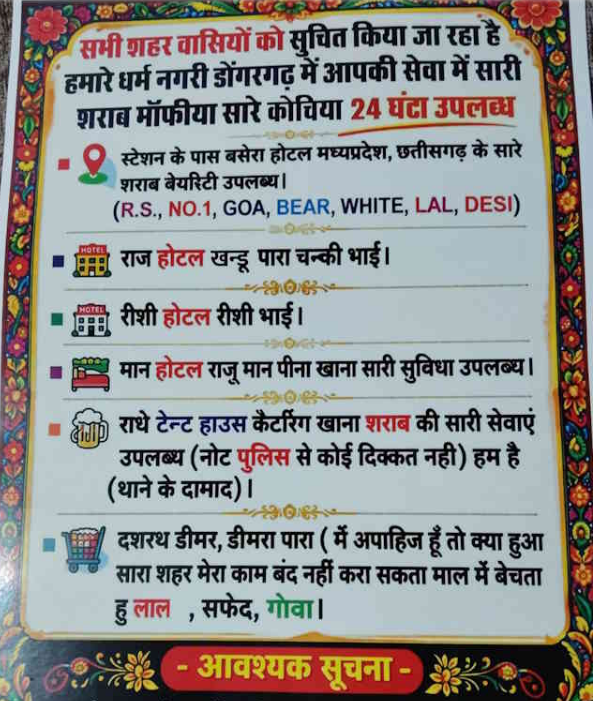 सभी शहर वासियों को सुचित किया जा रहा है
हमारे धर्म नगरी डोंगरगढ़ में आपकी सेवा में सारी
शराब मॉफीया सारे कोचिया 24 घंटा उपलब्ध
स्टेशन के पास बसेरा होटल मध्यप्रदेश, छतीसगढ़ के सारे
शराब बेयरिटी उपलब्य।
(R.S., NO.1, GOA, BEAR, WHITE, LAL, DESI)
HOTEL
राज होटल खन्डू पारा चन्की भाई।
HOTEL
रीशी होटल रीशी भाई।
मान होटल राजू मान पीना खाना सारी सुविधा उपलब्य।
राथे टेन्ट हाउस कैटरिंग खाना शराब की सारी सेवाएं
उपलब्य (नोट पुलिस से कोई दिक्कत नही) हम है
(थाने के दामाद)।
दशरथ डीमर, डीमरा पारा ( में अपाहिज हूँ तो क्या हुआ
सारा शहर मेरा काम बंद नहीं करा सकता माल में बेचता
हु लाल , सफेद, गोवा।
- आवश्यक सूचना -